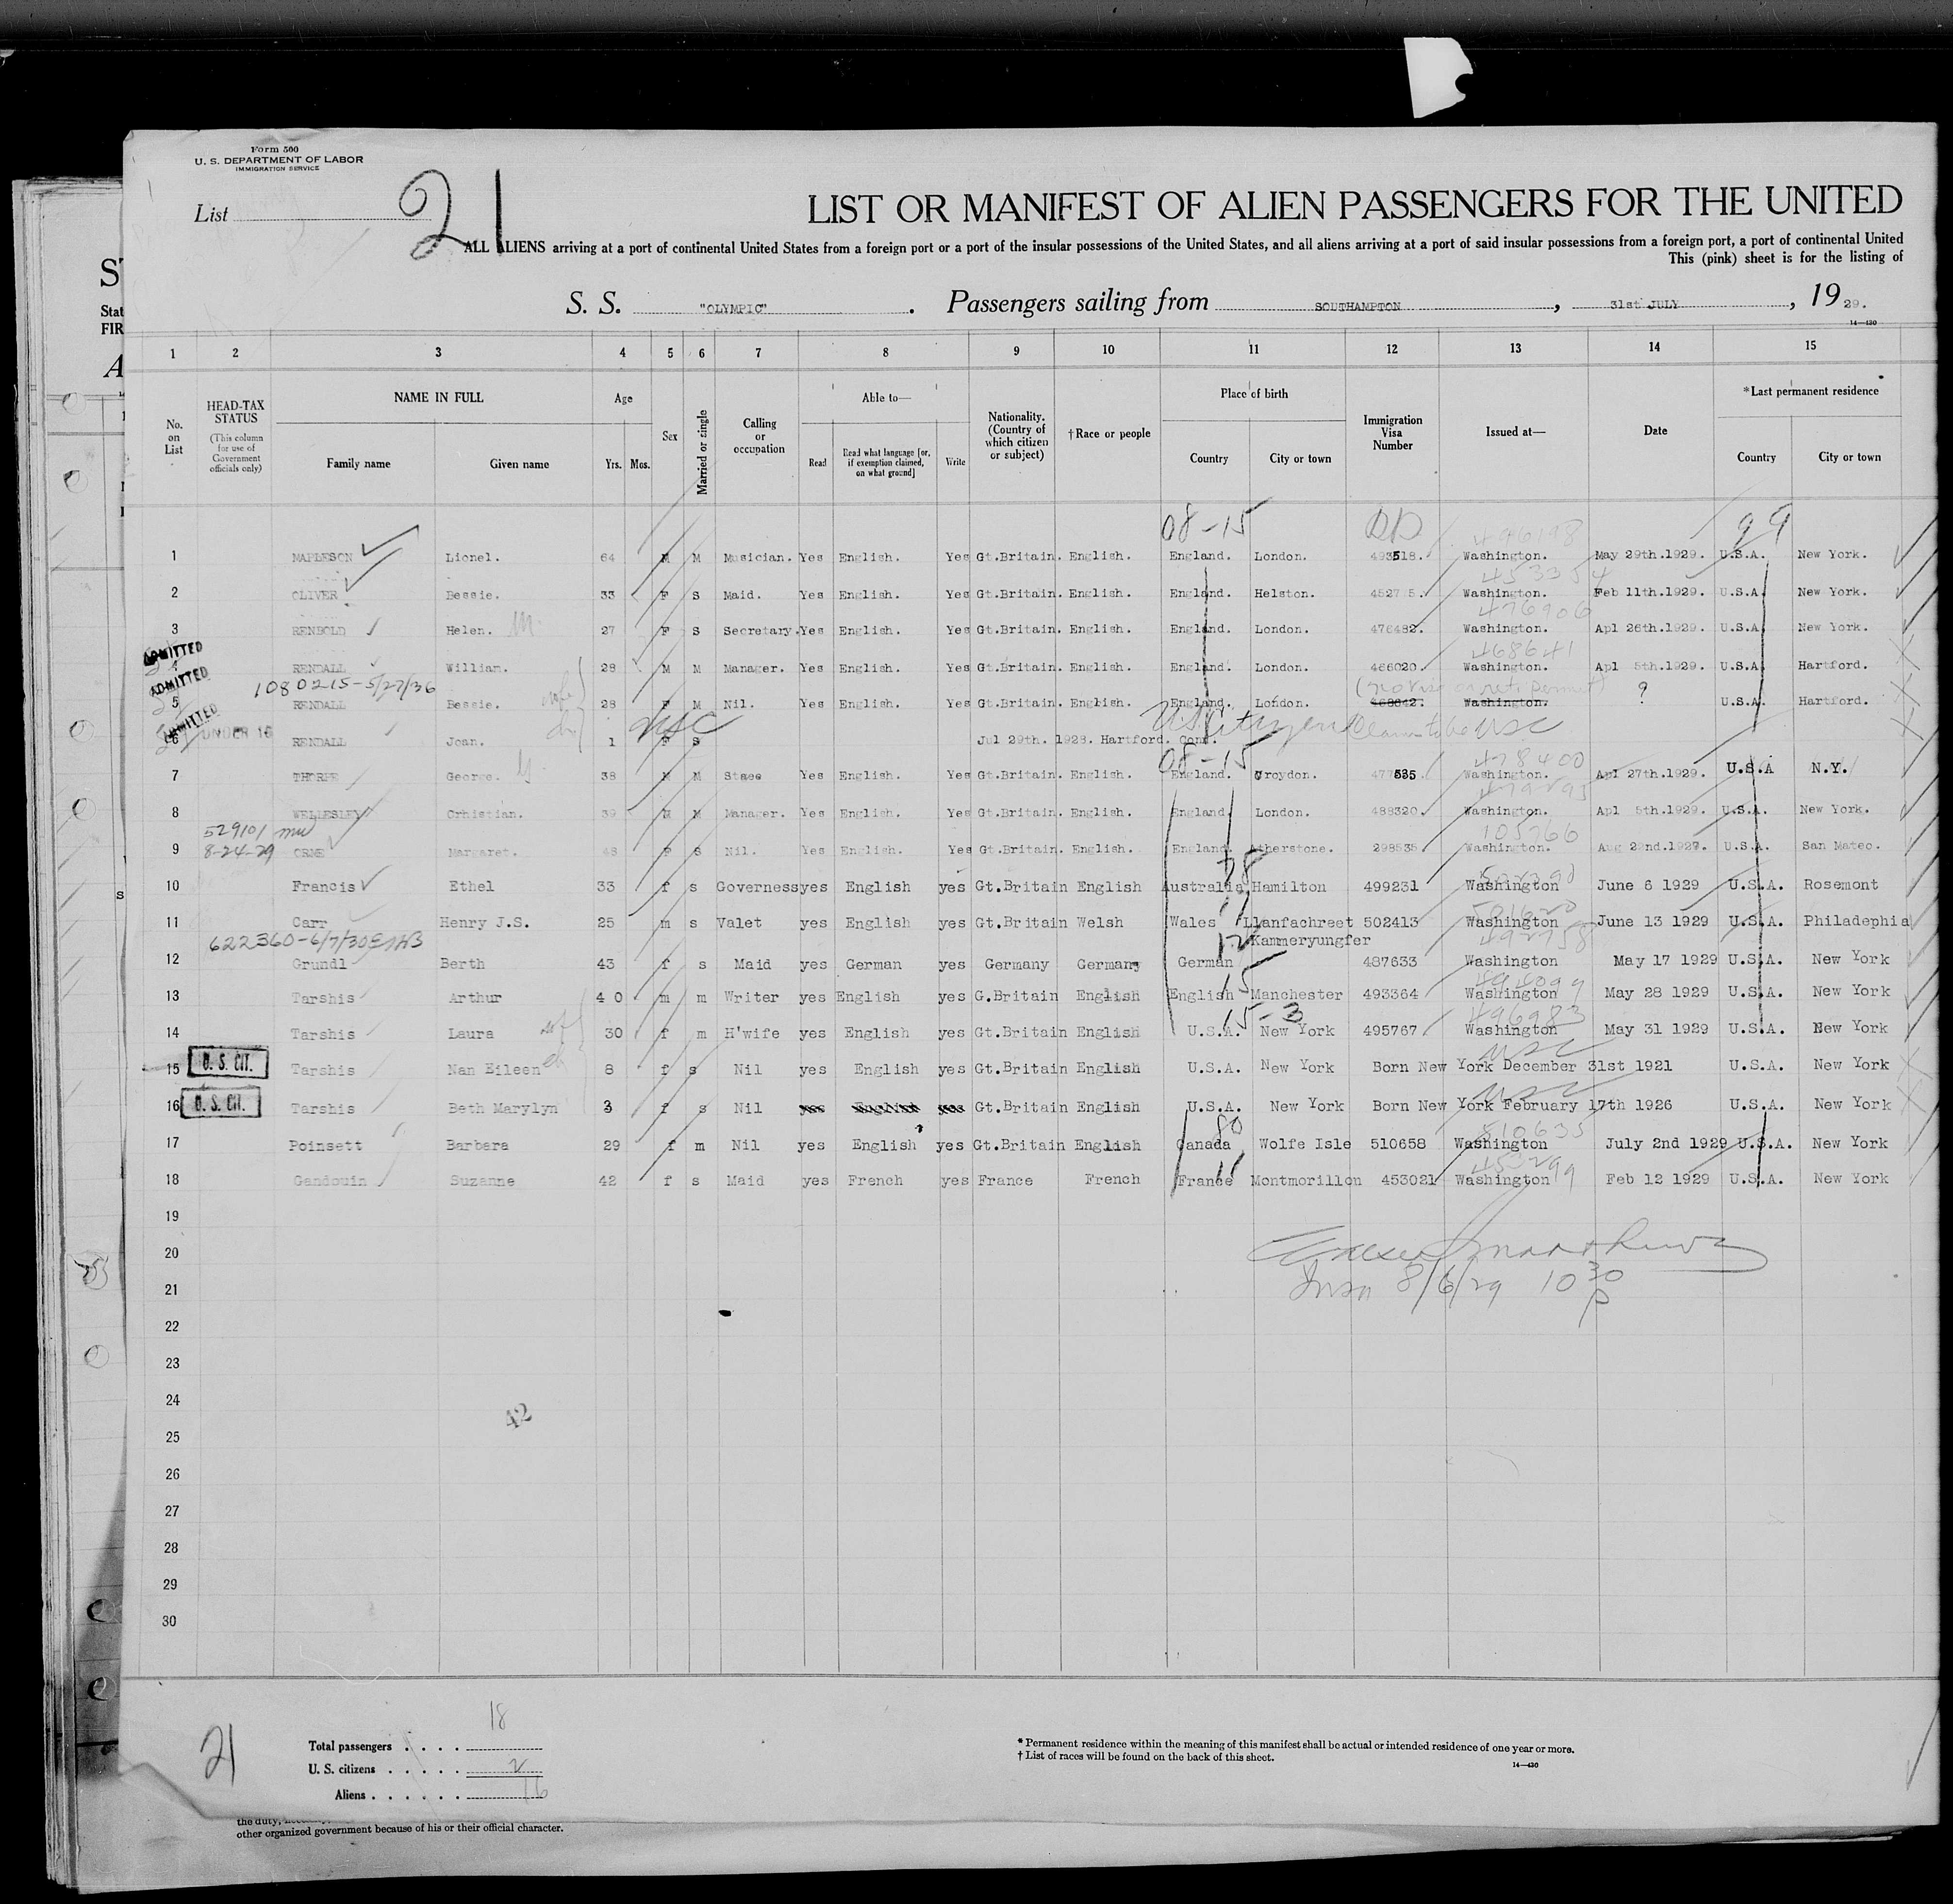 Form 500
U. S. DEPARTMENT OF LABOR
IMMIGRATION SERVICE
List 21
LIST OR MANIFEST OF ALIEN PASSENGERS FOR THE UNITED
ALL ALIENS arriving at a port of continental United States from a foreign port or a port of the insular possessions of the United States, and all aliens arriving at a port of said insular possessions from a foreign port, a port of continental United
This (pink) sheet is for the listing of
S. S. "OLYMPIC". Passengers sailing from SOUTHAMPTON, 31st JULY, 1929.
14—430
1 2 3 4 5 6 7 8 9 10 11 12 13 14 15
No. on List
HEAD-TAX STATUS (This column for use of Government officials only)
NAME IN FULL
Family name Given name
Age
Yrs. Mos.
Sex
Married or single
Calling or occupation
Able to—
Read Read what language [or, if exemption claimed, on what ground] Write
Nationality. (Country of which citizen or subject)
†Race or people
Place of birth
Country City or town
Immigration Visa Number
Issued at—
Date
*Last permanent residence
Country City or town
08-15 496198 99
1 MAPLESON Lionel. 64 M M Musician. Yes English. Yes Gt.Britain. English. England. London. 493518. Washington. May 29th.1929. U.S.A. New York.
453354
2 OLIVER Bessie. 33 F S Maid. Yes English. Yes Gt.Britain. English. England. Helston. Washington. Feb 11th.1929. U.S.A. New York.
476906
3 RENBOLD Helen. 27 F S Secretary. Yes English. Yes Gt.Britain. English. England. London. 476482. Washington. Apl 26th.1929. U.S.A. New York.
ADMITTED 468641
4 RENDALL William. 28 M M Manager. Yes English. Yes Gt.Britain. English. England. London. 466020. Washington. Apl 5th.1929. U.S.A. Hartford.
ADMITTED 1080215-5/27/36 ?
5 RENDALL Bessie. 28 F M Nil. Yes English. Yes Gt.Britain. English. England. London. 468642. Washington. U.S.A. Hartford.
ADMITTED UNDER 16 USC U.S. Citizen Claim to be USC
6 RENDALL Joan. 1 F S Jul 29th. 1928. Hartford. Conn.
08-15 478400
7 THORPE George. 38 M M Yes English. Yes Gt.Britain. English. England. Croydon. 477535 Washington. Apl 27th.1929. U.S.A N.Y.
8 WELLESLEY Crhistian. 39 M M Manager. Yes English. Yes Gt.Britain. English. England. London. 488320. Washington. Apl 5th.1929. U.S.A. New York.
529101 105766
8-24-29
9 ORME Margaret. 48 F S Nil. Yes English. Yes Gt.Britain. English. England. Atherstone. 298535 Washington. Aug 22nd.1929. U.S.A. San Mateo.
78
10 Francis Ethel 33 f s Governess yes English yes Gt.Britain English Australia Hamilton 499231 Washington June 6 1929 U.S.A. Rosemont
11 Carr Henry J.S. 25 m s Valet yes English yes Gt.Britain Welsh Wales Llanfachreet 502413 Washington June 13 1929 U.S.A. Philadephia
622360-6/7/30 Kammeryungfer 492758
12 Grundl Berth 43 f s Maid yes German yes Germany Germany German 487633 Washington May 17 1929 U.S.A. New York
13 Tarshis Arthur 40 m m Writer yes English yes G.Britain English English Manchester 493364 Washington May 28 1929 U.S.A. New York
15-3 496983
14 Tarshis Laura 30 f m H'wife yes English yes Gt.Britain English U.S.A. New York 495767 Washington May 31 1929 U.S.A. New York
USC
15 U. S. CIT. Tarshis Nan Eileen 8 f s Nil yes English yes Gt.Britain English U.S.A. New York Born New York December 31st 1921 U.S.A. New York
USC
16 U. S. CIT. Tarshis Beth Marylyn 3 f s Nil yes English yes Gt.Britain English U.S.A. New York Born New York February 17th 1926 U.S.A. New York
80 510635
17 Poinsett Barbara 29 f m Nil yes English yes Gt.Britain English Canada Wolfe Isle 510658 Washington July 2nd 1929 U.S.A. New York
453299
18 Gandouin Suzanne 42 f s Maid yes French yes France French France Montmorillon 453021 Washington Feb 12 1929 U.S.A. New York
19
20
21 8/6/29 10 30 P
22
23
24
42
25
26
27
28
29
30
21
18
Total passengers
U. S. citizens 2
Aliens 16
* Permanent residence within the meaning of this manifest shall be actual or intended residence of one year or more.
† List of races will be found on the back of this sheet.
14—430
the duty,
other organized government because of his or their official character.